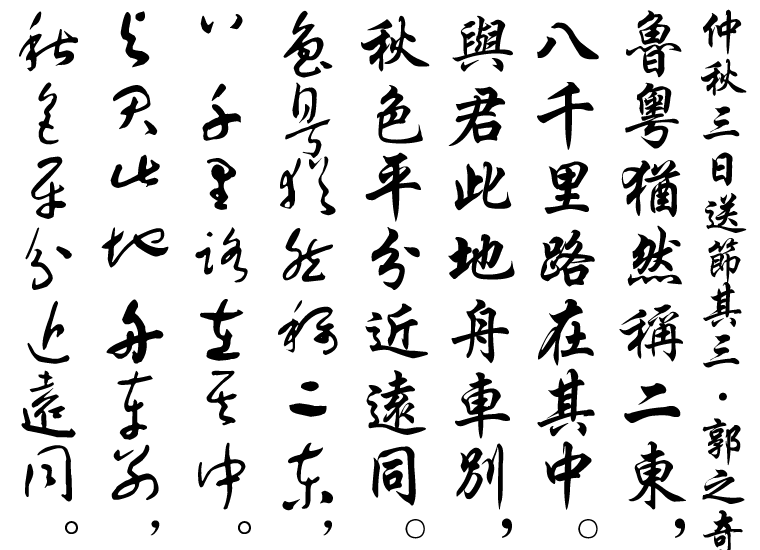 仲秋三日送節其三・郭之奇
魯粵猶然稱二東，
八千里路在其中。
與君此地舟車別，
秋色平分近遠同。
魯粵猶然稱二東，
八千里路在其中。
與君此地舟車別，
秋色平分近遠同。